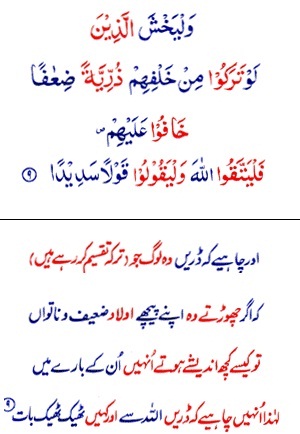 وَلْيَخْشَ الَّذِيْنَ
لَوْ تَرَكُوْا مِنْ خَلْفِهِمْ ذُرِّيَّةً ضِعٰفًا
خَافُوْا عَلَيْهِمْ ۖ
فَلْيَتَّقُوا اللّٰهَ وَلْيَقُوْلُوْا قَوْلًا سَدِيْدًا ۹
اور چاہیے کہ ڈریں وہ لوگ جو (ترکہ تقسیم کر رہے ہیں)
کہ اگر چھوڑتے وہ اپنے پیچھے اولاد ضعیف و ناتواں
تو کیسے کچھ اندیشے ہوتے اُنہیں اُن کے بارے میں
لہٰذا اُنہیں چاہیے کہ ڈریں اللہ سے اور کہیں ٹھیک ٹھیک بات ۹